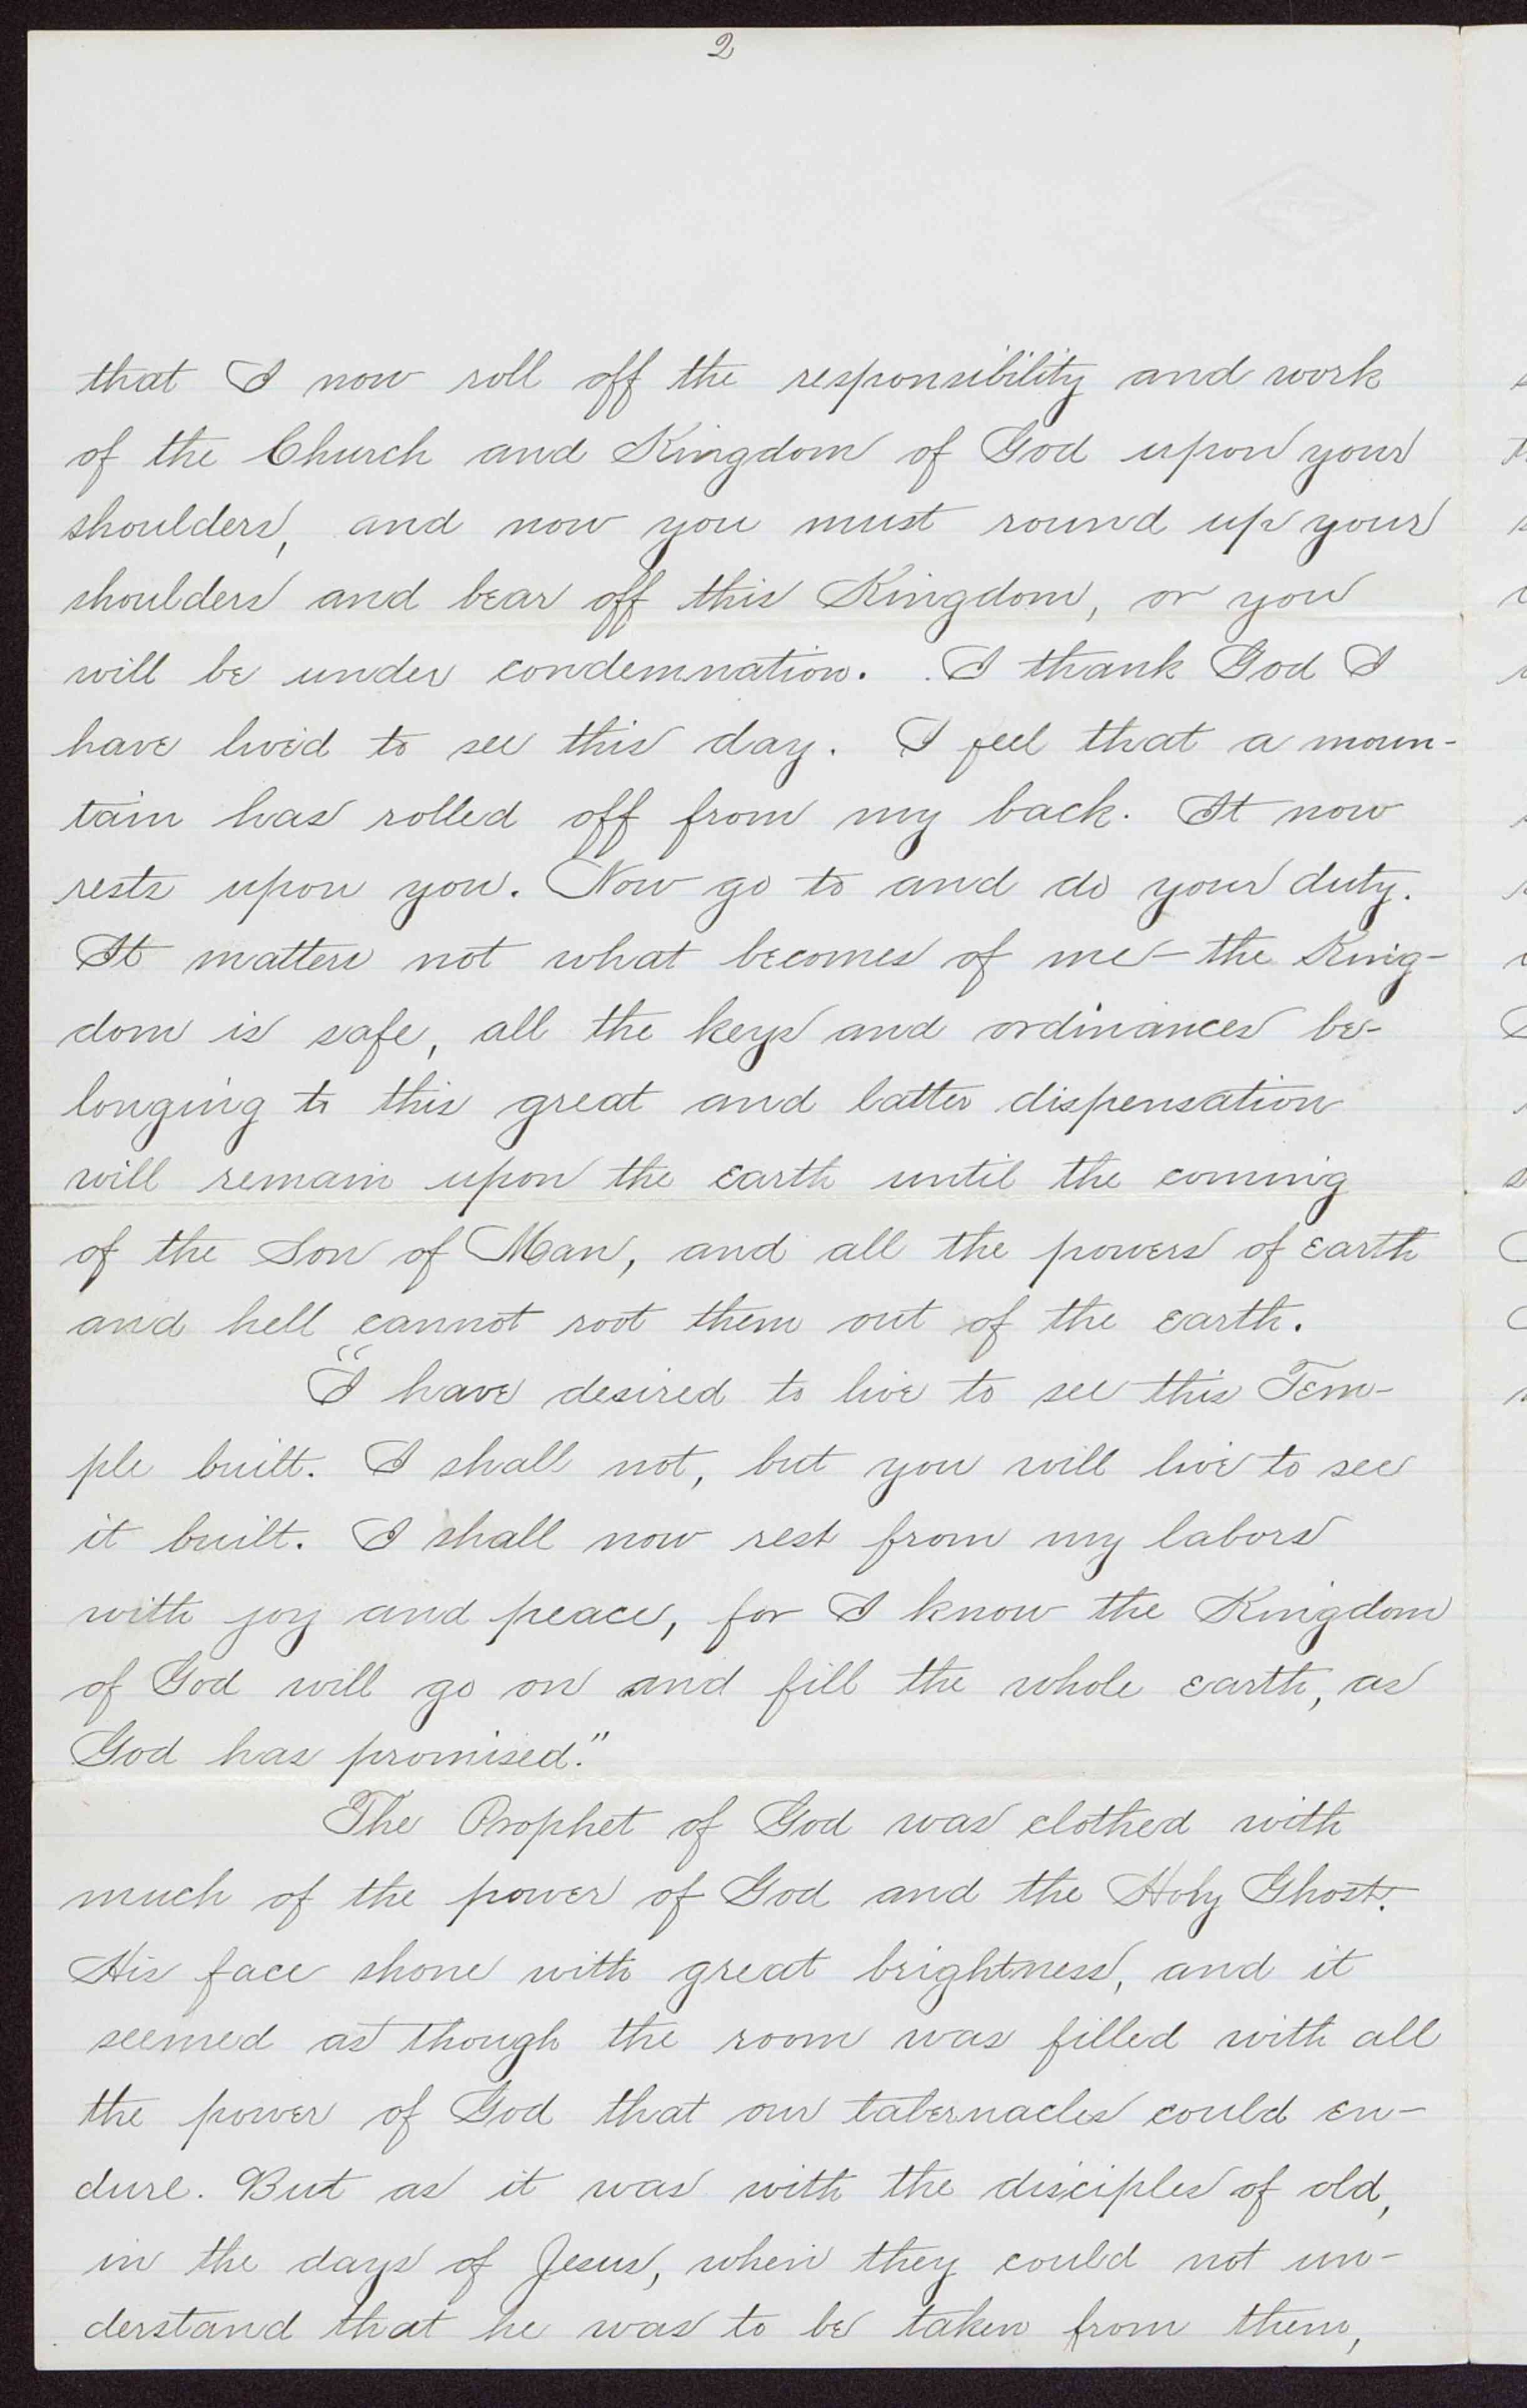 2
that I now roll off the responsibility and work
of the Church and Kingdom of God upon your
shoulders, and now you must round up your
shoulders and bear off this Kingdom, or you
will be under condemnation. I thank God I
have lived to see this day. I feel that a moun-
tain has rolled off from my back. It now
rests upon you. Now go to and do your duty.
It matters not what becomes of me – the King-
dom is safe, all the keys and ordinances be-
longing to this great and latter dispensation
will remain upon the earth until the coming
of the Son of Man, and all the powers of earth
and hell cannot root them out of the earth.
"I have desired to live to see this Tem-
ple built. I shall not, but you will live to see
it built. I shall now rest from my labors
with joy and peace, for I know the Kingdom
of God will go on and fill the whole earth, as
God has promised."
The Prophet of God was clothed with
much of the power of God and the Holy Ghost.
His face shone with great brightness, and it
seemed as though the room was filled with all
the power of God that our tabernacles could en-
dure. But as it was with the disciples of old,
in the days of Jesus, when they could not un-
derstand that he was to be taken from them,